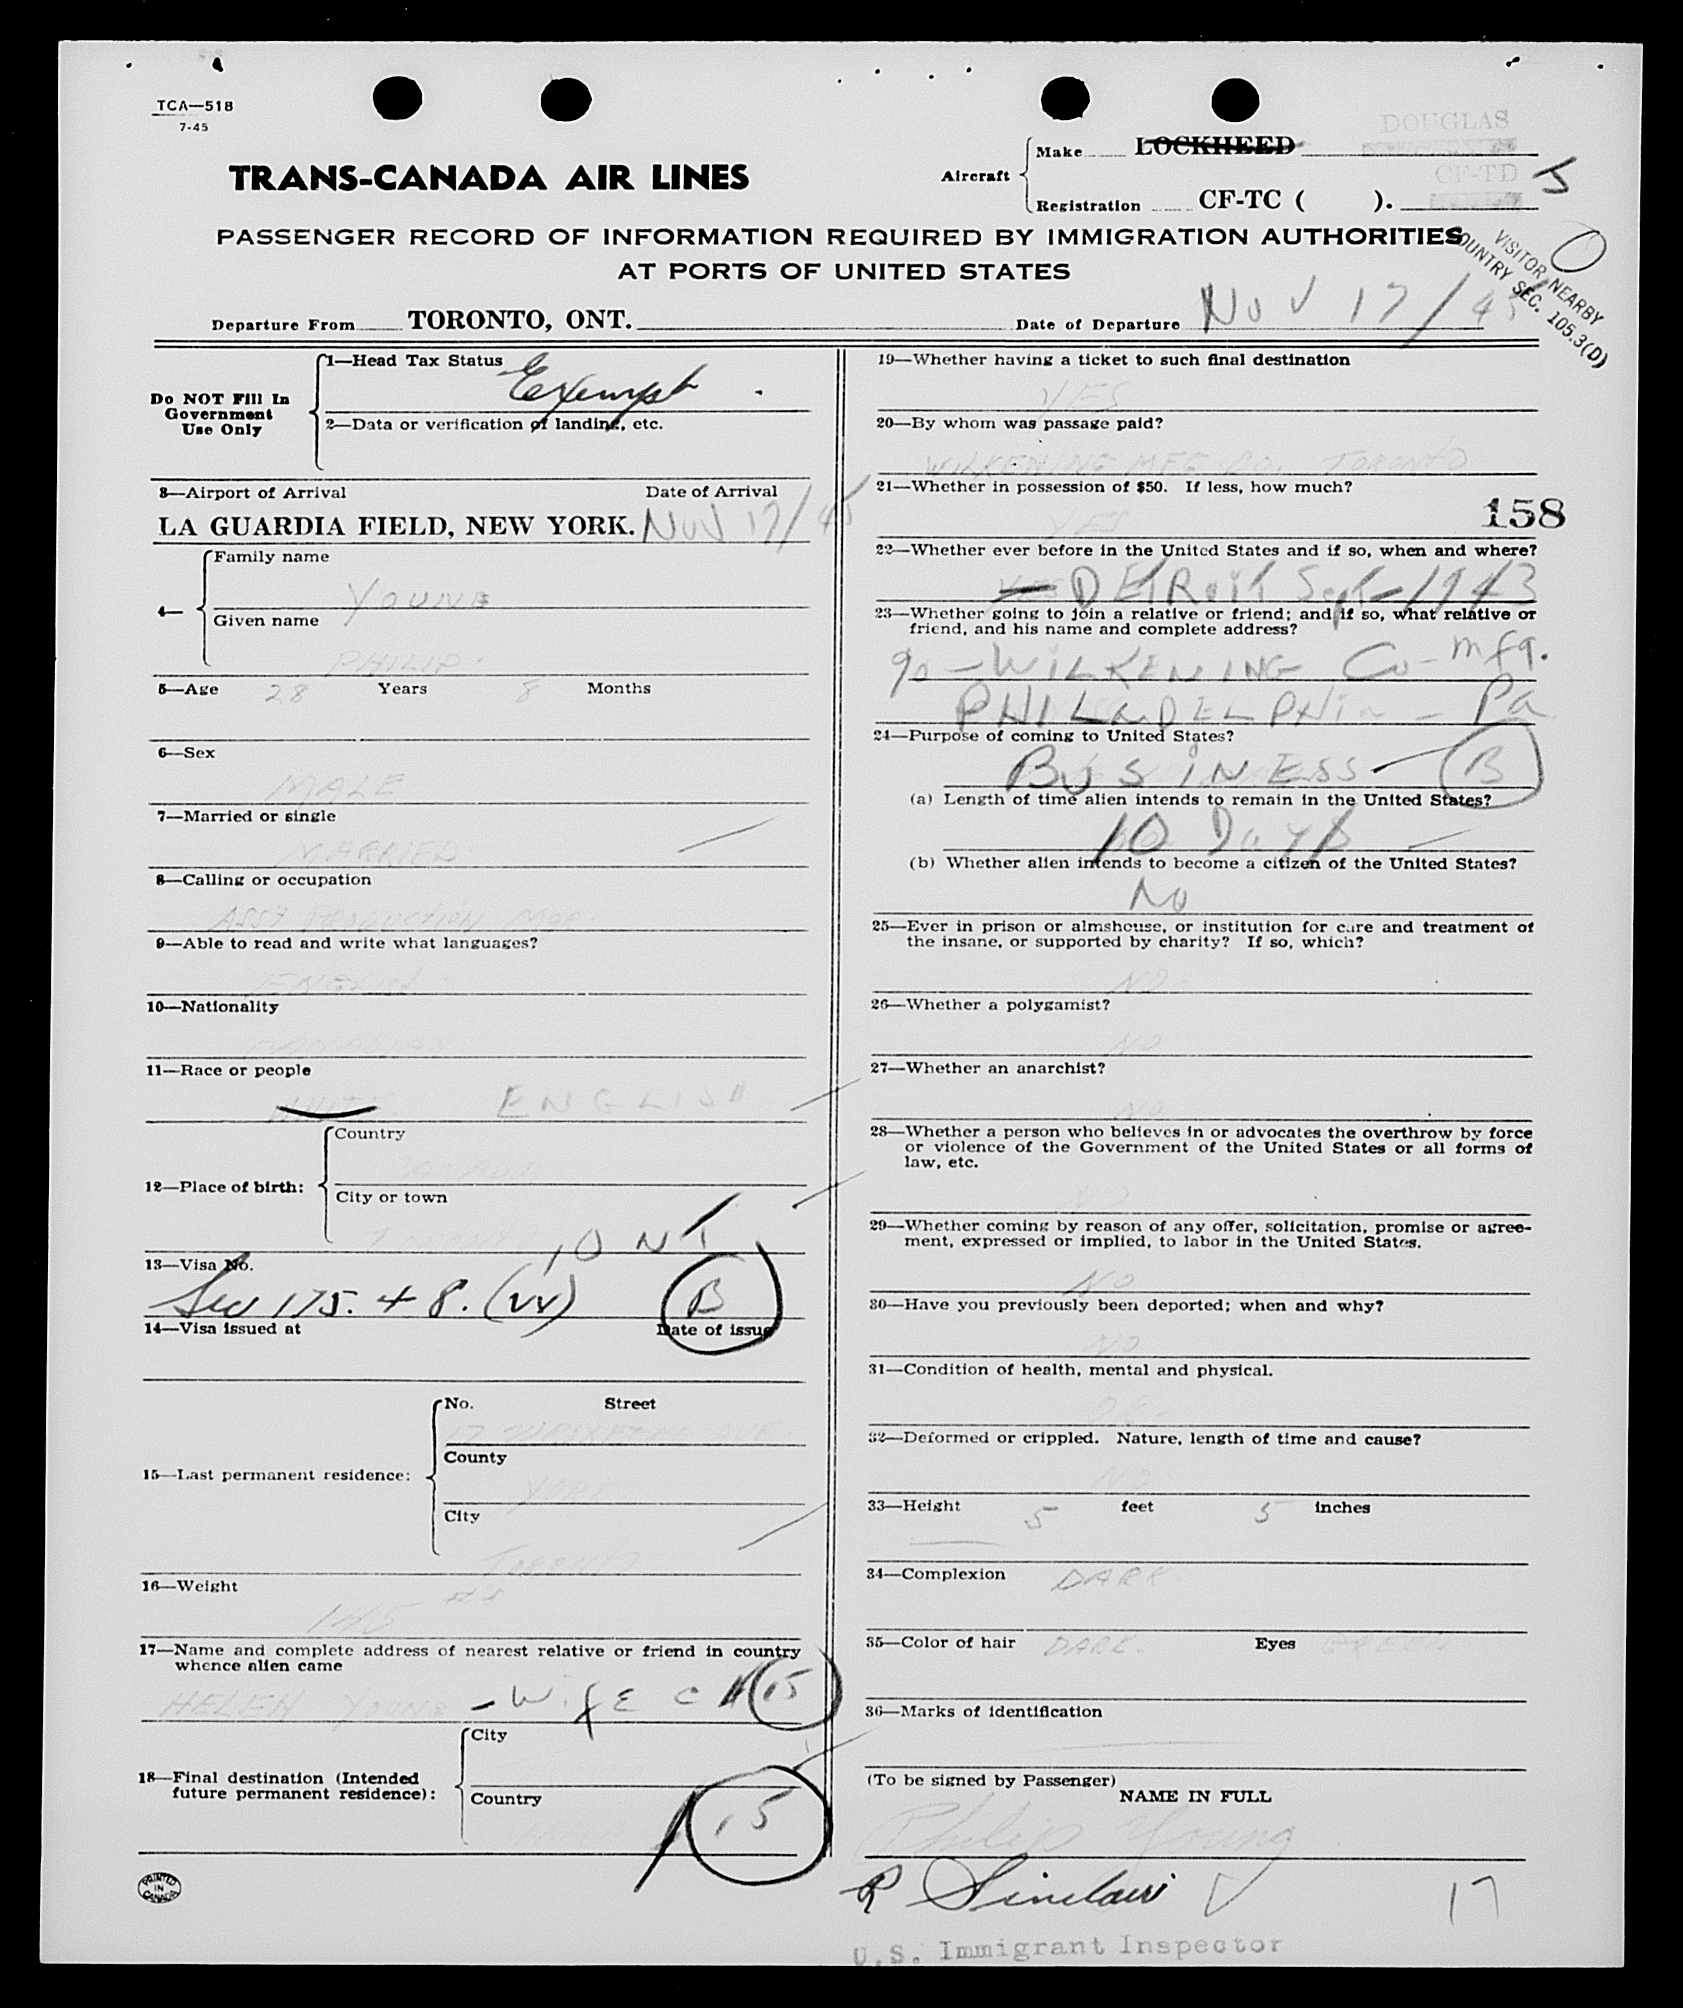 TCA—518
7-45
TRANS-CANADA AIR LINES
Aircraft
Make LOCKHEED
DOUGLAS
CF-TD
Registration CF-TC ( ).
PASSENGER RECORD OF INFORMATION REQUIRED BY IMMIGRATION AUTHORITIES
AT PORTS OF UNITED STATES
VISITOR NEARBY
COUNTRY SEC. 105.3(D)
Departure From TORONTO, ONT.
Date of Departure NOV 17/45
Do NOT Fill In
Government
Use Only
1—Head Tax Status
Exempt
2—Data or verification of landing, etc.
3—Airport of Arrival Date of Arrival
LA GUARDIA FIELD, NEW YORK. NOV 17/45
4—
Family name
YOUNG
Given name
PHILIP
5—Age 28 Years 8 Months
6—Sex
MALE
7—Married or single
MARRIED
8—Calling or occupation
ASST PRODUCTION MGR.
9—Able to read and write what languages?
ENGLISH
10—Nationality
CANADIAN
11—Race or people
WHITE ENGLISH
12—Place of birth:
Country
CANADA
City or town
TORONTO, ONT
13—Visa No.
Sec 175.48. (VV) B
14—Visa issued at Date of issue
15—Last permanent residence:
No. Street
17 AVE
County
YORK
City
TORONTO
16—Weight
145
17—Name and complete address of nearest relative or friend in country
whence alien came
HELEN YOUNG - WIFE 15
18—Final destination (Intended
future permanent residence):
City
Country
15
PRINTED
IN
CANADA
19—Whether having a ticket to such final destination
YES
20—By whom was passage paid?
WILKENING MFG CO. TORONTO
21—Whether in possession of $50. If less, how much?
YES
158
22—Whether ever before in the United States and if so, when and where?
YES - DETROIT Sept - 1943
23—Whether going to join a relative or friend; and if so, what relative or
friend, and his name and complete address?
% - WILKENING Co - mfg.
PHILADELPHIA - Pa
24—Purpose of coming to United States?
BUSINESS - B
(a) Length of time alien intends to remain in the United States?
10 Days
(b) Whether alien intends to become a citizen of the United States?
No
25—Ever in prison or almshouse, or institution for care and treatment of
the insane, or supported by charity? If so, which?
NO
26—Whether a polygamist?
NO
27—Whether an anarchist?
NO
28—Whether a person who believes in or advocates the overthrow by force
or violence of the Government of the United States or all forms of
law, etc.
29—Whether coming by reason of any offer, solicitation, promise or agree-
ment, expressed or implied, to labor in the United States.
NO
30—Have you previously been deported; when and why?
NO
31—Condition of health, mental and physical.
32—Deformed or crippled. Nature, length of time and cause?
NO
33—Height 5 feet 5 inches
34—Complexion DARK
35—Color of hair DARK. Eyes GREEN
36—Marks of identification
(To be signed by Passenger)
NAME IN FULL
Philip Young
R Sinclair
17
U.S. Immigrant Inspector